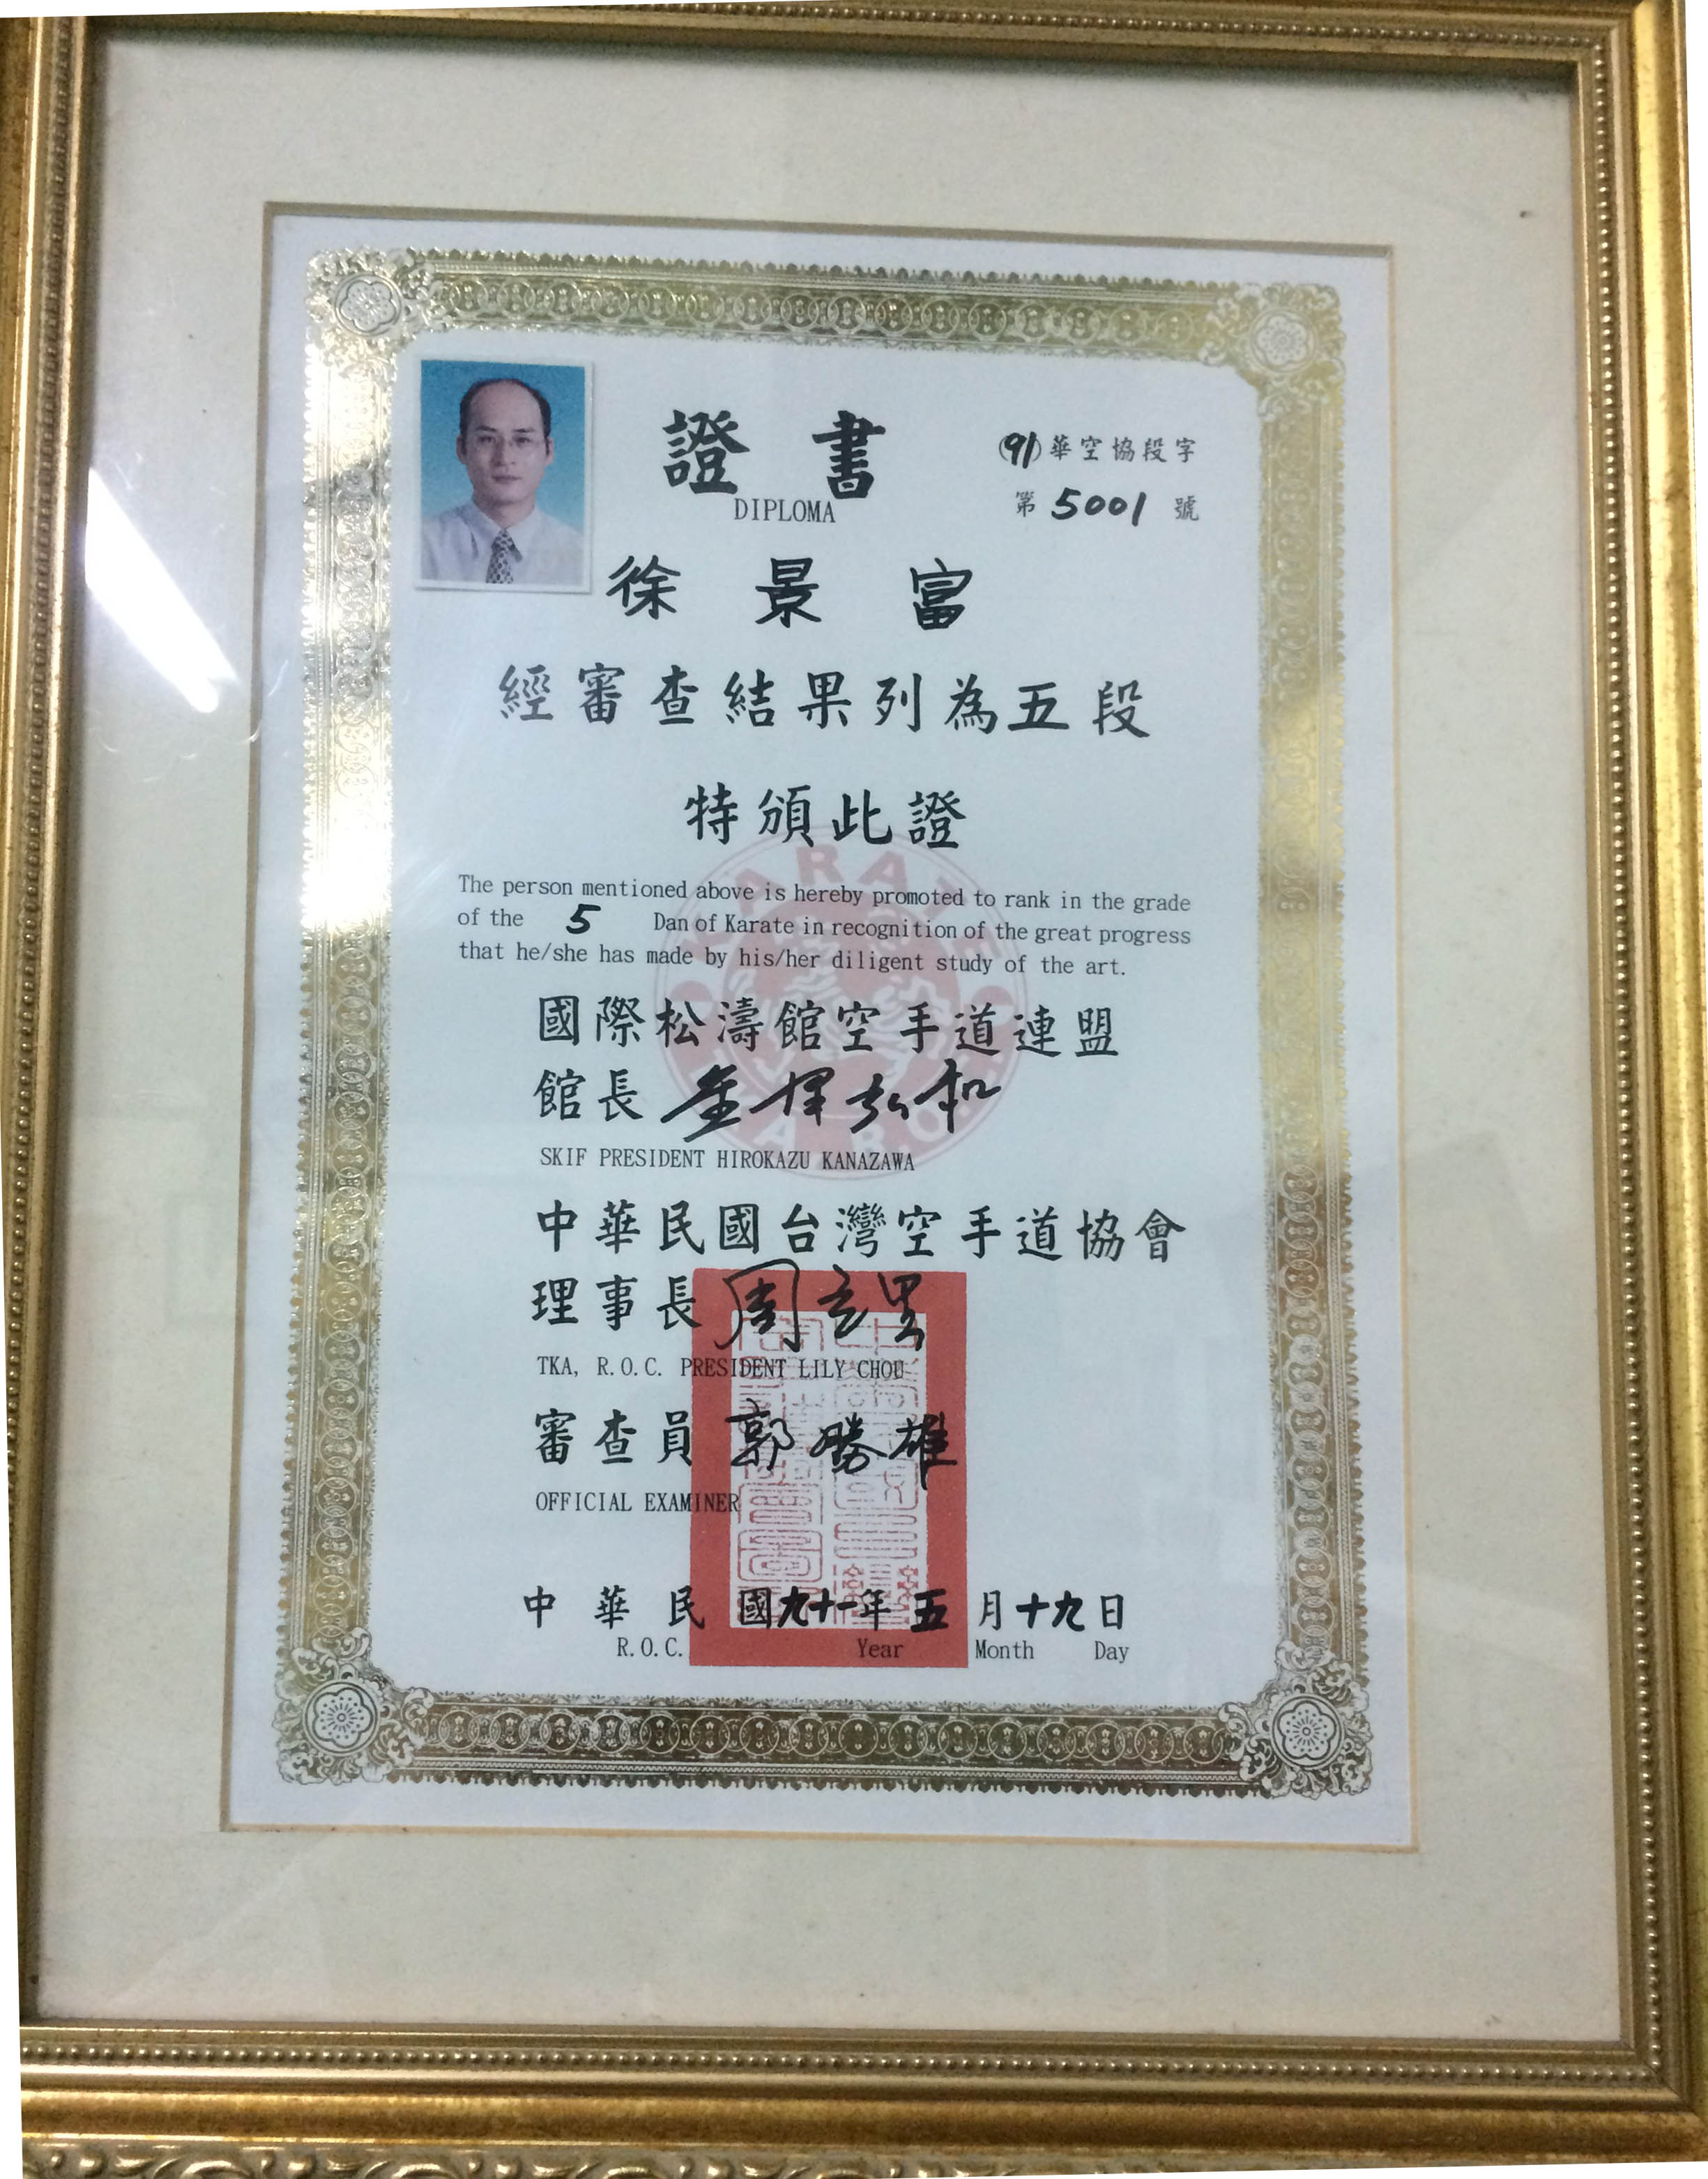 證書
DIPLOMA
(91)華空協段字
第 5001 號
徐景富
經審查結果列為五段
特頒此證
The person mentioned above is hereby promoted to rank in the grade
of the 5 Dan of Karate in recognition of the great progress
that he/she has made by his/her diligent study of the art.
國際松濤館空手道連盟
館長 金澤弘和
SKIF PRESIDENT HIROKAZU KANAZAWA
中華民國台灣空手道協會
理事長
TKA, R.O.C. PRESIDENT LILY CHOU
審查員 郭勝雄
OFFICIAL EXAMINER
中華民國九十一年五月十九日
R.O.C. Year Month Day